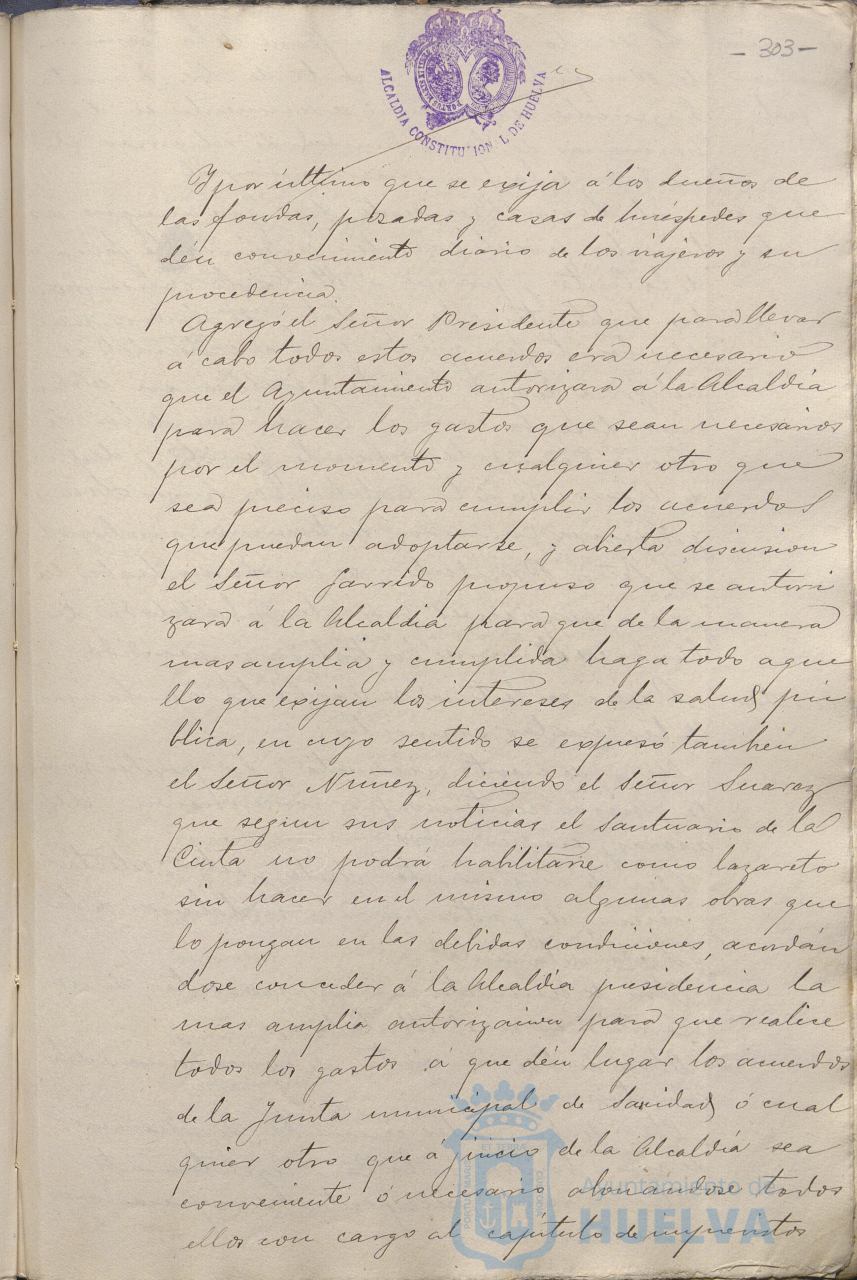 - 303 -
ALCALDIA CONSTITUCIONAL DE HUELVA
Y por último que se exija á los dueños de
las fondas, posadas y casas de huéspedes que
dén conocimiento diario de los viajeros y su
procedencia.
Agregó el Señor Presidente que para llevar
á cabo todos estos acuerdos era necesario
que el Ayuntamiento autorizara á la Alcaldía
para hacer los gastos que sean necesarios
por el momento y cualquier otro que
sea preciso para cumplir los acuerdos
que puedan adoptarse, y abierta discusion
el Señor Garrido propuso que se autori
zara á la Alcaldia para que de la manera
mas amplia y cumplida haga todo aque
llo que exijan los intereses de la salud pú
blica, en cuyo sentido se expresó tambien
el Señor Nuñez, diciendo el Señor Suarez
que segun sus noticias el Santuario de la
Cinta no podrá habilitarse como lazareto
sin hacer en el mismo algunas obras que
lo pongan en las debidas condiciones, acordán
dose conceder á la Alcaldía presidencia la
mas amplia autorizacion para que realice
todos los gastos á que dén lugar los acuerdos
de la Junta municipal de Sanidad ó cual
quier otro que á juicio de la Alcaldía sea
conveniente ó necesario abonandose todos
ellos con cargo al capítulo de imprevistos
Ayuntamiento de
HUELVA